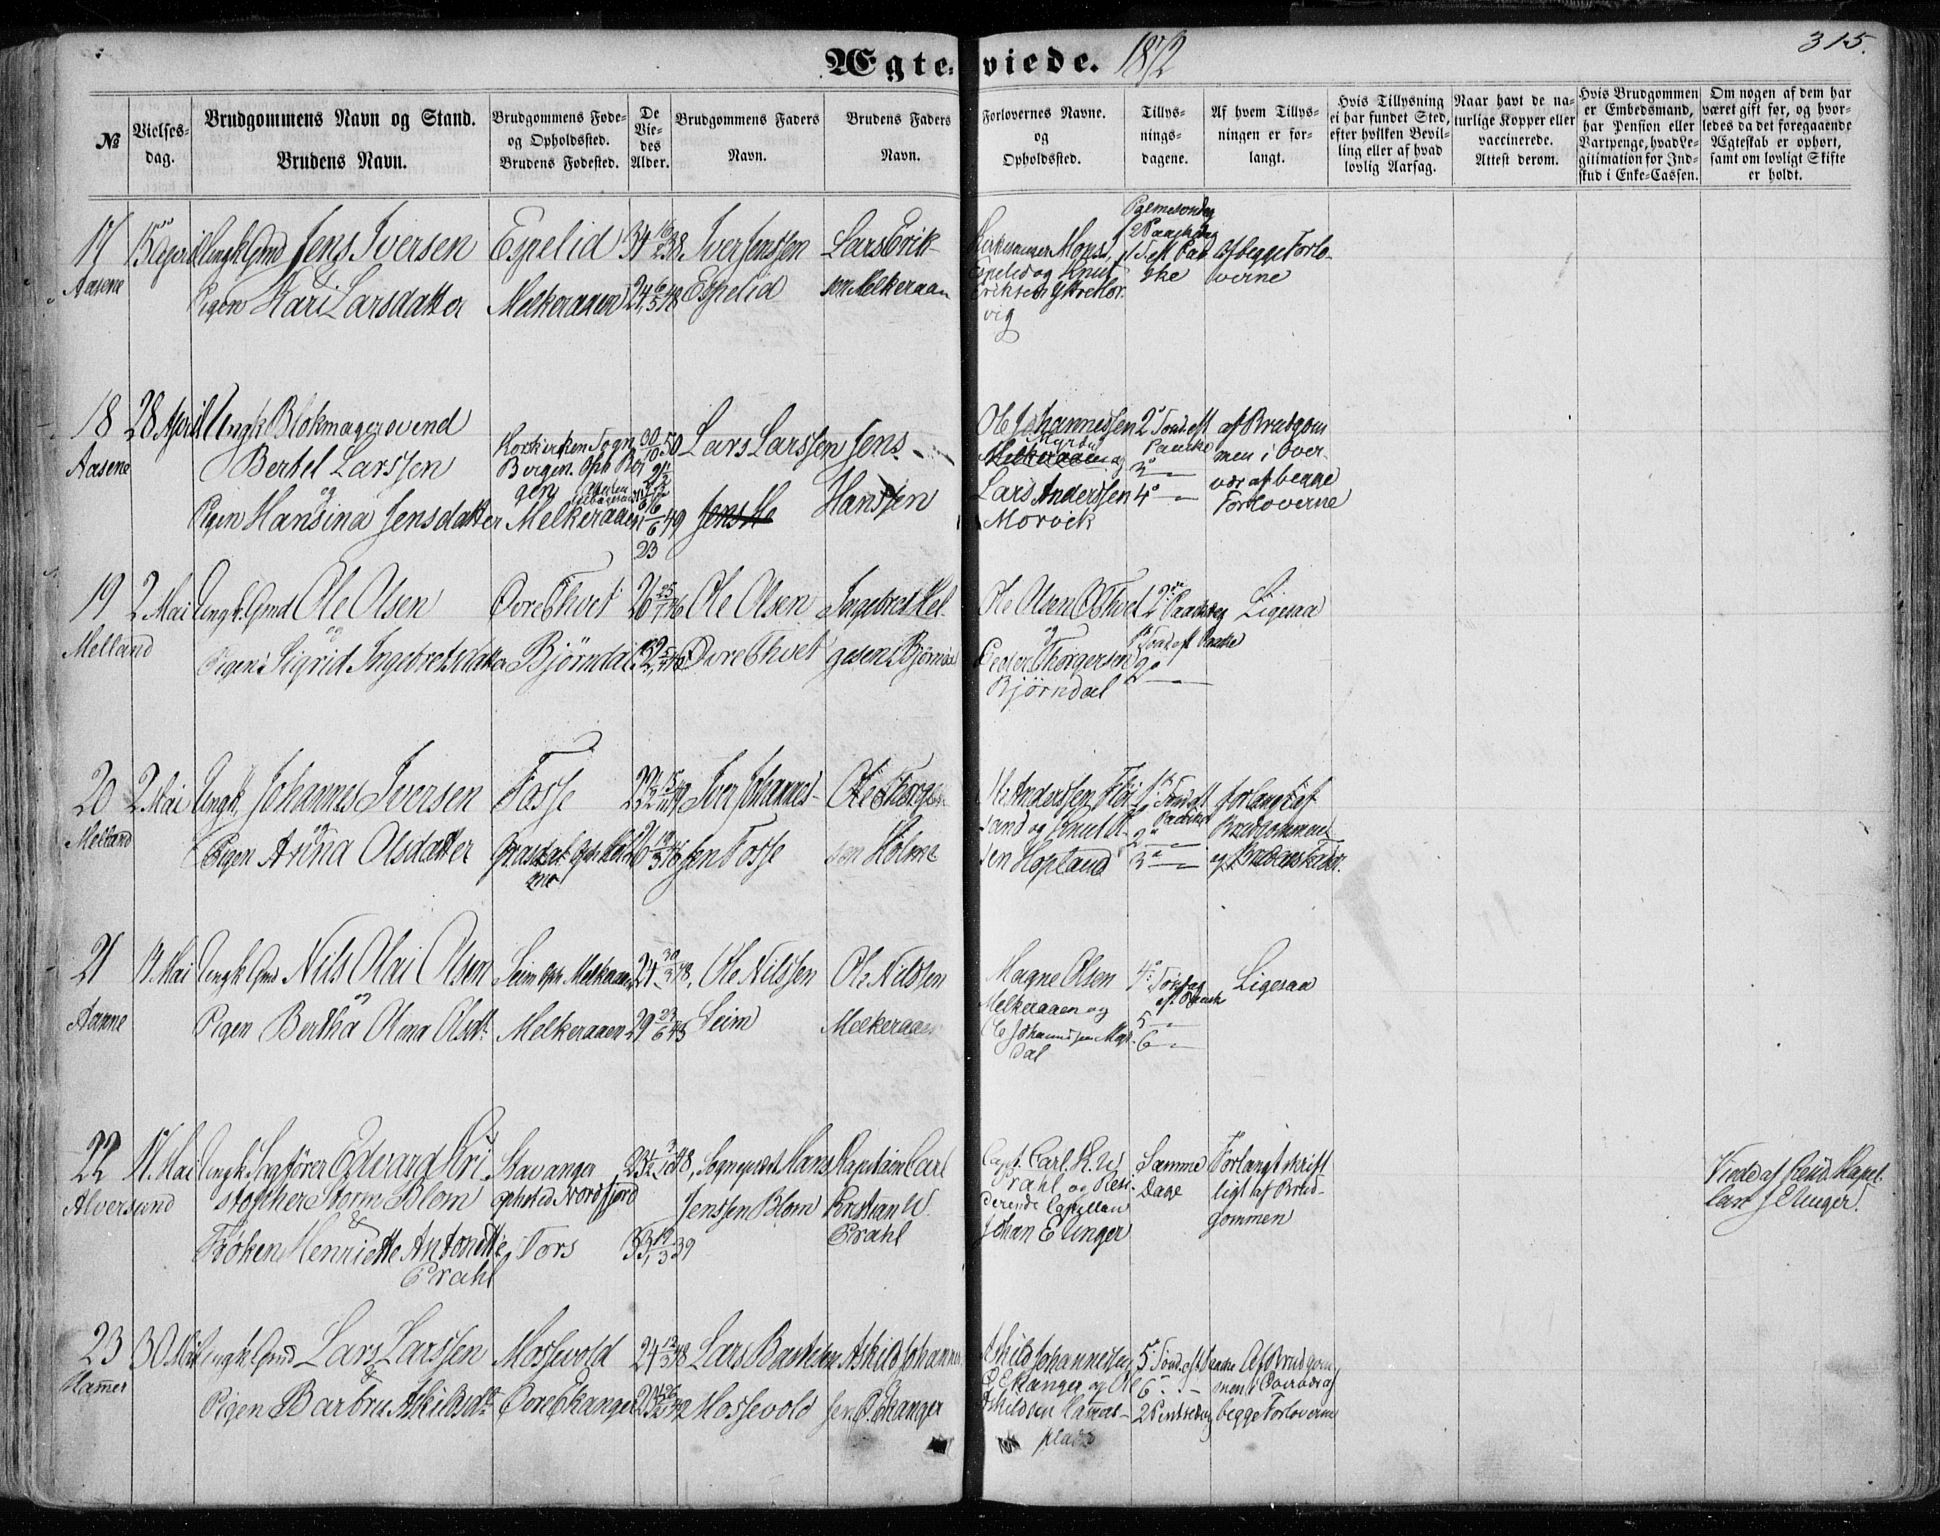 Ægteviede. 1872
315.
№
Vielses-
dag.
Brudgommens Navn og Stand.
Brudens Navn.
Brudgommens Føde-
og Opholdssted.
Brudens Fødested.
De
Vie-
des
Alder.
Brudgommens Faders
Navn.
Brudens Faders
Navn.
Forlovernes Navne.
og
Opholdssted.
Tillys-
nings-
dagene.
Af hvem Tillys-
ningen er for-
langt.
Hvis Tillysning
ei har fundet Sted,
efter hvilken Bevil-
ling eller af hvad
lovlig Aarsag.
Naar havt de na-
turlige Kopper eller
vaccinerede.
Attest derom.
Hvis Brudgommen
er Embedsmand,
har Pension eller
Vartpenge, hvad Le-
gitimation for Ind-
skud i Enke-Cassen.
Om nogen af dem har
været gift før, og hvor-
ledes da det foregaaende
Ægteskab er ophørt,
samt om lovligt Skifte
er holdt.
17
Aasene
15 April
Ungk Gmd Jens Iversen
&
Pigen Kari Larsdatter
Espelid
Melkeraaen
34 16/2 38
24 6/5 48
Iver Jenssen
Espelid
Lars Erik-
sen Melkeraaen
Mons
Espelid og Knut
Eriksen Ytre Mor-
vig
Palmesondag
2 Paaskedag
1 S. eft Paa-
ske
Af begge Forlo-
verne
18
Aasene
28 April
Ungk Blokmagersvend
Bertel Larssen
og
Pigen Hansina Jensdatter
Korskirken Sogn
Bergen. Oph Ber
gen
Melkeraaen
30/10 50
/6 49
23
Lars Larssen
Jens He
Jens
Hanssen
Ole Johannessen
Myrdal
Melkeraaen og
Lars Anderssen
Morvik
2 Sønd. eft
Paaske
3
4
af Brudgom
men i Over-
vær af begge
Forloverne
19
Melland
2 Mai
Ungk. Gmd Ole Olsen
og
Pigen Sigrid Ingebretsdatter
Øvre Thvet
Bjørndal
26 25/1 46
Ole Olsen
Øvre Thvet
Ingebret Hel-
gesen Bjørndal
Ole Olsen Ø Thvet
og
Peder Thorgersen
Bjørndal
2 Paaskedag
1 Sønd eft Paaske
2
Ligesaa
20
Melland
2 Mai
Ungk. Johannes Iversen
og
Pigen Anna Olsdatter
Fosse
22 1/2 15/11 49
26 19/3 46
Iver Johannes-
sen Fosse
Ole Thorger-
sen Holme
Ole Anderssen Flei
sand og Knut K.
sen Hopland
1 Sønd eft
Paaske
2
3
forlangt af
Brudgommen
og Brudens Fader.
21
Aasene
17. Mai
Ungk. Gmd Nils Olai Olsen
og
Pigen Bertha Olina Olsdt.
Seim Oph Melkeraaen
Melkeraaen
24 30/3 48,
29 23/6 43
Ole Nilssen
Seim
Ole Nilssen
Melkeraaen
Magne Olsen
Melkeraaen og
Ole Johannessen Myr-
dal
4 Søndag
eft Paaske
5
6
Ligesaa
22
Alversund
17. Mai
Ungk. Sagfører Edvard Kri
stopher Storm Blom
&
Frøken Henriette Antonette
Prahl
Stavanger
opholds Nordfjord
Fors
23 1/2 3/10 48,
33 19/3 39
Sognepræst Hans
Jenssen Blom
Kapitain Carl
Kristian W.
Prahl
Capt. Carl. K. W.
Prahl og Resi-
derende Capellan
Johan E Unger
Samme
Dage
Forlangt skrift
ligt af Brud-
gommen
Viede af Resid. Kapel-
lan J E Unger.
23
Hamer
30 Mai
Ungk. Gmd Lars Larssen
&
Pigen Barbru Askildsdt.
Mosevold
Øvre Ekanger
24 12/3 48
Lars Bastesen
Mossevold
Askild Johannes
sen Ø. Ekanger
Askild Johannessen
Ø Ekanger og Ole
Askildsen Hamer-
plads
5 Sønd. eft Paaske
6
2 Pintsedag
Af Brudgom
men i Overvær af
begge Forloverne